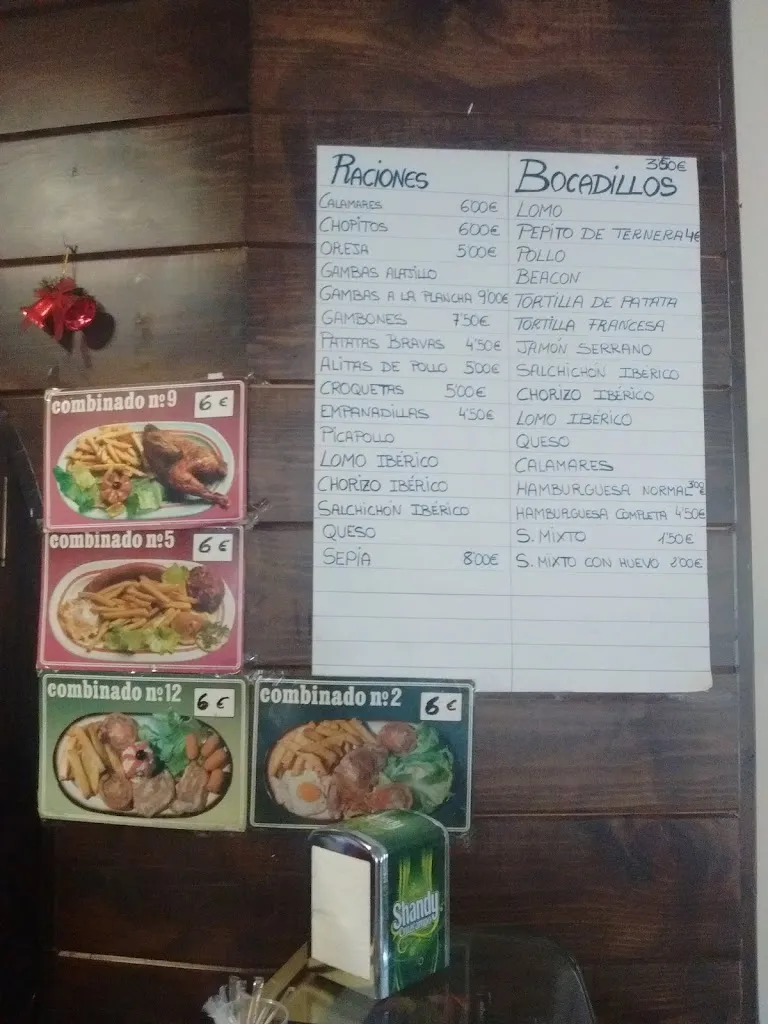 RACIONES
CALAMARES 6'00€
CHOPITOS 6'00€
OREJA 5'00€
GAMBAS ALAJILLO
GAMBAS A LA PLANCHA 9'00€
GAMBONES 7'50€
PATATAS BRAVAS 4'50€
ALITAS DE POLLO 5'00€
CROQUETAS 5'00€
EMPANADILLAS 4'50€
PICAPOLLO
LOMO IBÉRICO
CHORIZO IBÉRICO
SALCHICHÓN IBÉRICO
QUESO
SEPIA 8'00€
BOCADILLOS 3'50€
LOMO
PEPITO DE TERNERA 4€
POLLO
BEACON
TORTILLA DE PATATA
TORTILLA FRANCESA
JAMÓN SERRANO
SALCHICHÓN IBÉRICO
CHORIZO IBÉRICO
LOMO IBÉRICO
QUESO
CALAMARES
HAMBURGUESA NORMAL 3'00€
HAMBURGUESA COMPLETA 4'50€
S. MIXTO 1'50€
S. MIXTO CON HUEVO 2'00€
combinado nº9 6€
combinado nº5 6€
combinado nº12 6€
combinado nº2 6€
Shandy